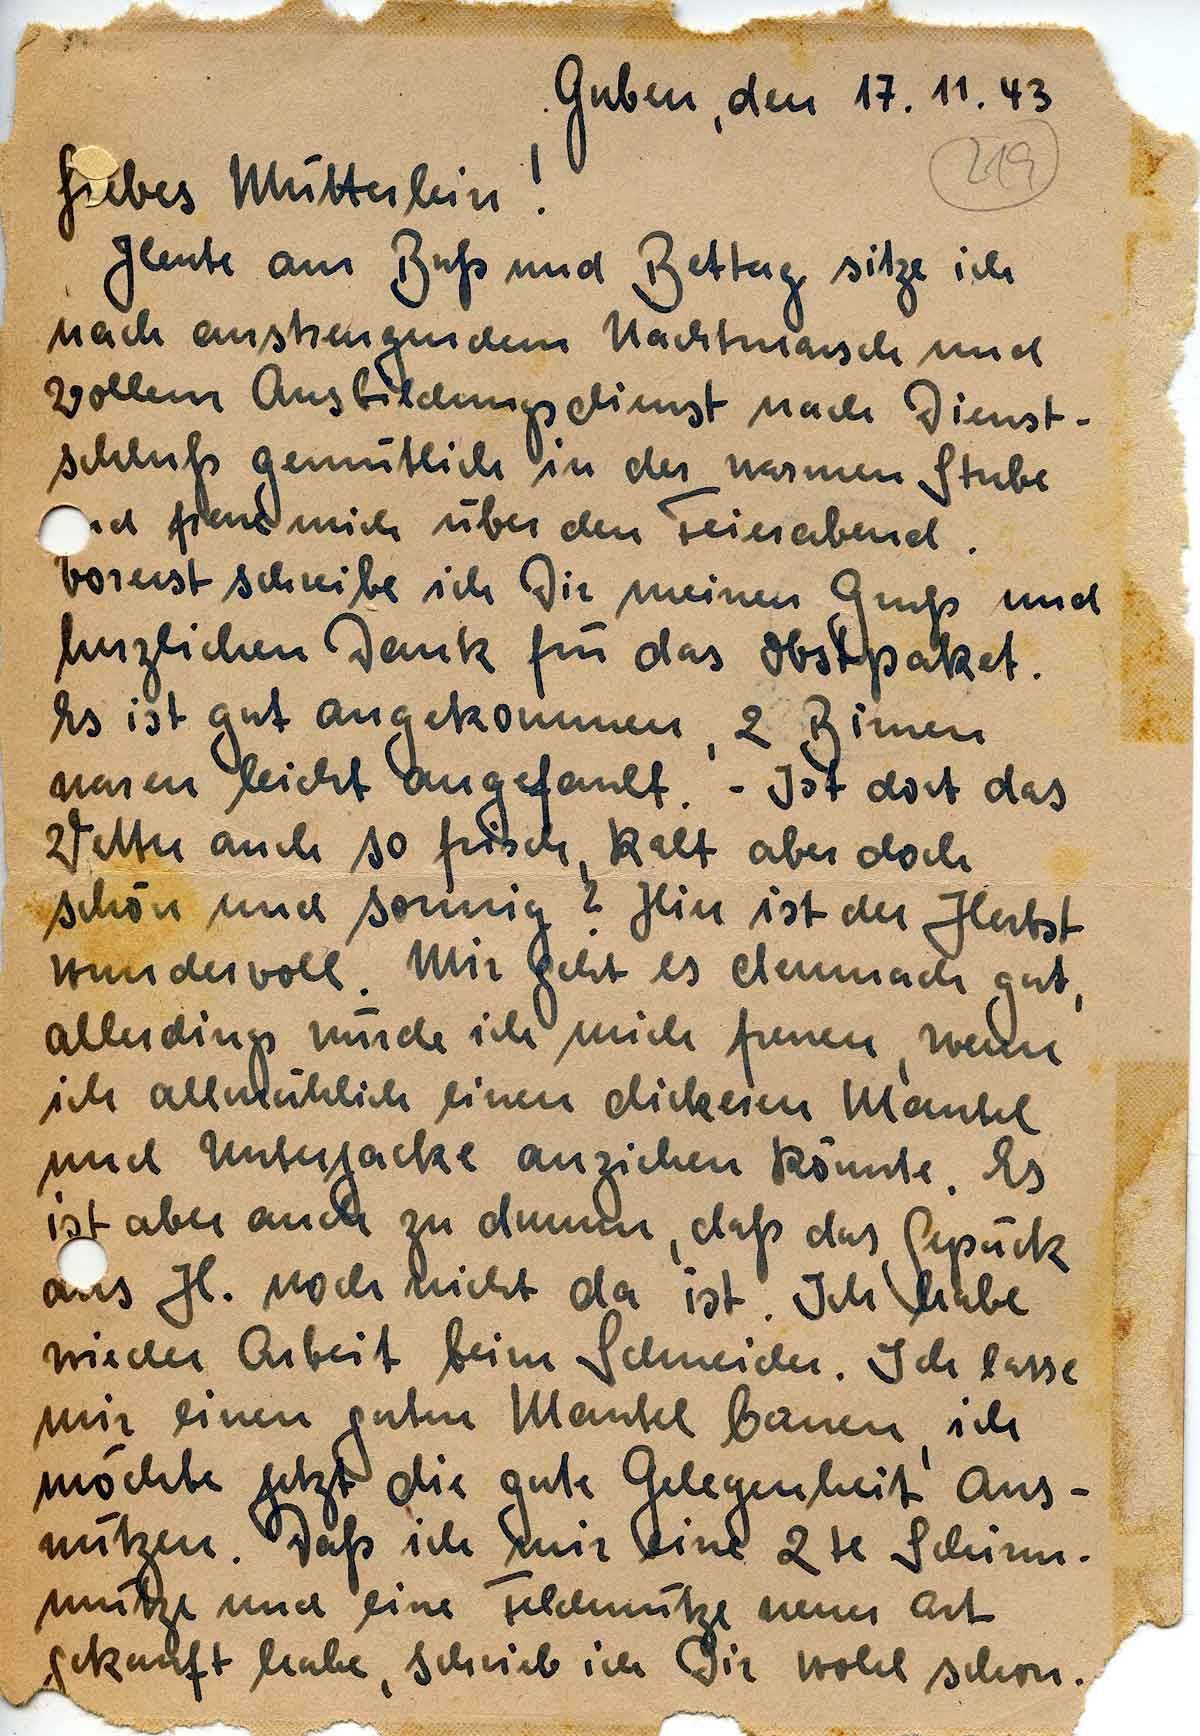 Guben, den 17. 11. 43
219
Liebes Mütterlein!
Heute am Buß und Bettag sitze ich
nach anstrengendem Nachtmarsch und
vollem Ausbildungsdienst nach Dienst-
schluß gemütlich in der warmen Stube
und freue mich über den Feierabend.
Vorerst schreibe ich Dir meinen Gruß und
herzlichen Dank für das Obstpaket.
Es ist gut angekommen, 2 Birnen
waren leicht angefault. - Ist dort das
Wetter auch so frisch, kalt aber doch
schön und sonnig? Hier ist der Herbst
wundervoll. Mir geht es demnach gut,
allerdings würde ich mich freuen, wenn
ich allmählich einen dickeren Mantel
und Unterjacke anziehen könnte. Es
ist aber auch zu dumm, daß das Gepäck
aus H. noch nicht da ist. Ich habe
wieder Arbeit beim Schneider. Ich lasse
mir einen guten Mantel bauen, ich
möchte jetzt die gute Gelegenheit aus-
nützen. Daß ich mir eine 2te Schirm-
mütze und eine Feldmütze neuer Art
gekauft habe, schrieb ich Dir wohl schon.